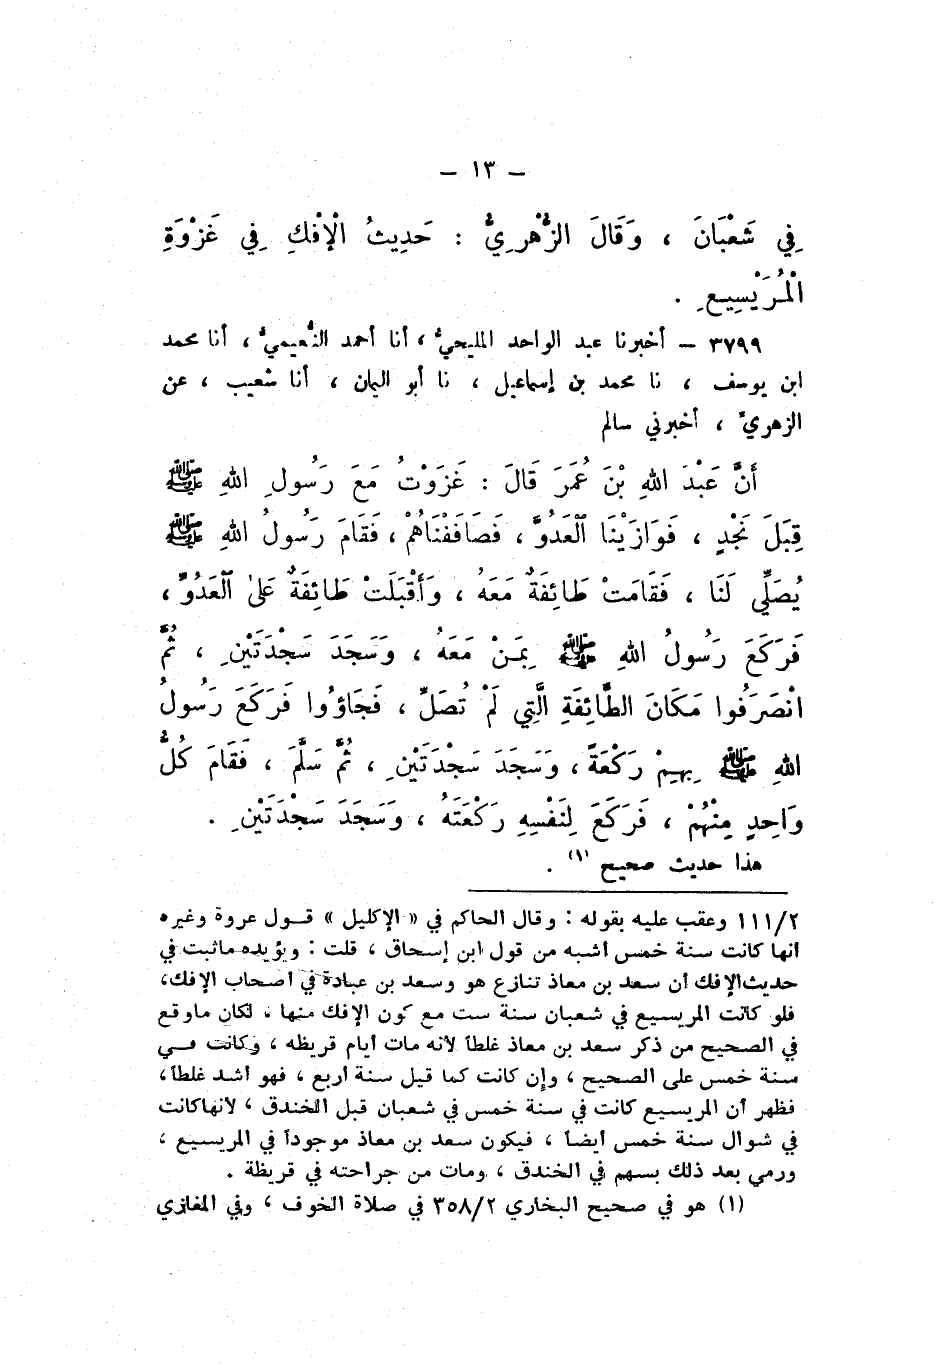 – ١٣ –
فِي شَعْبَانَ ، وَقَالَ الزُّهْرِيُّ : حَدِيثُ الْإِفْكِ فِي غَزْوَةِ
الْمُرَيْسِيعِ .
٣٧٩٩ – أخبرنا عبد الواحد المليحيُّ ، أنا أحمد النُّعيميُّ ، أنا محمد
ابن يوسف ، نا محمد بن إسماعيل ، نا أبو اليمان ، أنا شعيب ، عن
الزهريِّ ، أخبرني سالم
أَنَّ عَبْدَ اللهِ بْنَ عُمَرَ قَالَ : غَزَوْتُ مَعَ رَسُولِ اللهِ ﷺ
قِبَلَ نَجْدٍ ، فَوَازَيْنَا الْعَدُوَّ ، فَصَافَفْنَاهُمْ ، فَقَامَ رَسُولُ اللهِ ﷺ
يُصَلِّي لَنَا ، فَقَامَتْ طَائِفَةٌ مَعَهُ ، وَأَقْبَلَتْ طَائِفَةٌ عَلَى الْعَدُوِّ ،
فَرَكَعَ رَسُولُ اللهِ ﷺ بِمَنْ مَعَهُ ، وَسَجَدَ سَجْدَتَيْنِ ، ثُمَّ
انْصَرَفُوا مَكَانَ الطَّائِفَةِ الَّتِي لَمْ تُصَلِّ ، فَجَاؤُوا فَرَكَعَ رَسُولُ
اللهِ ﷺ بِهِمْ رَكْعَةً ، وَسَجَدَ سَجْدَتَيْنِ ، ثُمَّ سَلَّمَ ، فَقَامَ كُلُّ
وَاحِدٍ مِنْهُمْ ، فَرَكَعَ لِنَفْسِهِ رَكْعَتَهُ ، وَسَجَدَ سَجْدَتَيْنِ .
هذا حديث صحيح (١) .
١١١/٢ وعقب عليه بقوله : وقال الحاكم في « الإكليل » قول عروة وغيره
أنها كانت سنة خمس أشبه من قول ابن إسحاق ، قلت : ويؤيده ماثبت في
حديث الإفك أن سعد بن معاذ تنازع هو وسعد بن عبادة في أصحاب الإفك ،
فلو كانت المريسيع في شعبان سنة ست مع كون الإفك منها ، لكان ماوقع
في الصحيح من ذكر سعد بن معاذ غلطاً لأنه مات أيام قريظه ، وكانت في
سنة خمس على الصحيح ، وإن كانت كما قيل سنة أربع ، فهو أشد غلطاً ،
فظهر أن المريسيع كانت في سنة خمس في شعبان قبل الخندق ، لأنها كانت
في شوال سنة خمس أيضاً ، فيكون سعد بن معاذ موجوداً في المريسيع ،
ورمي بعد ذلك بسهم في الخندق ، ومات من جراحته في قريظة .
(١) هو في صحيح البخاري ٣٥٨/٢ في صلاة الخوف ، وفي المغازي